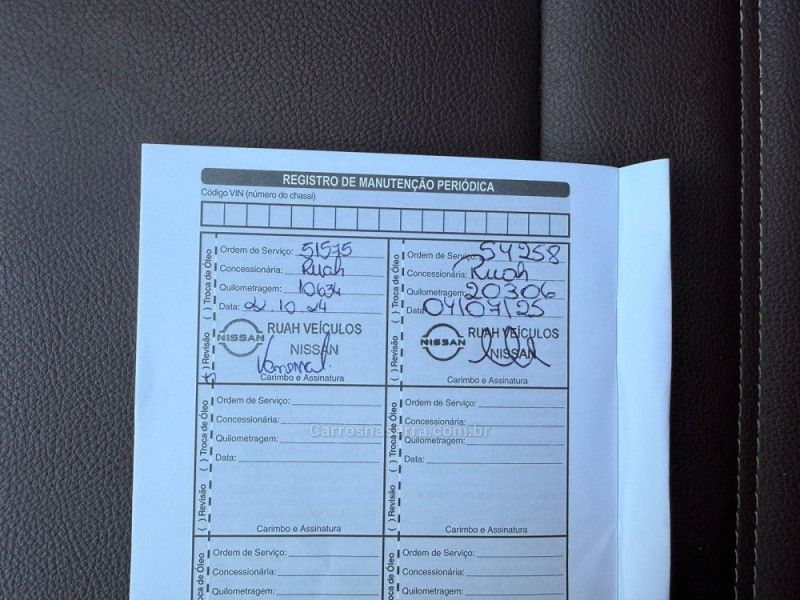 REGISTRO DE MANUTENÇÃO PERIÓDICA
Código VIN (número do chassi)
( ) Revisão ( ) Troca de Óleo
Ordem de Serviço: 51575
Concessionária: Ruah
Quilometragem: 10634
Data: .10.24
NISSAN
RUAH VEÍCULOS
NISSAN
Carimbo e Assinatura
( ) Revisão ( ) Troca de Óleo
Ordem de Serviço: 54258
Concessionária: Ruah
Quilometragem: 20306
Data: 04/07/25
NISSAN
RUAH VEÍCULOS
NISSAN
Carimbo e Assinatura
( ) Revisão ( ) Troca de Óleo
Ordem de Serviço:
Concessionária:
Quilometragem:
Data:
Carimbo e Assinatura
( ) Revisão ( ) Troca de Óleo
Ordem de Serviço:
Concessionária:
Quilometragem:
Data:
Carimbo e Assinatura
Carrosnaserra.com.br
Troca de Óleo
Ordem de Serviço:
Concessionária:
Quilometragem:
Troca de Óleo
Ordem de Serviço:
Concessionária:
Quilometragem: